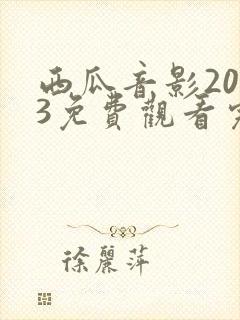 西瓜音影20
3免費觀看完
徐麗萍